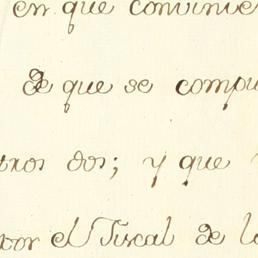 en que convinie
de que se compu
tros dos; y que
por el Fiscal de la